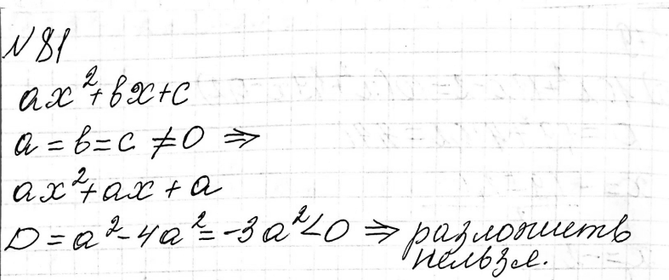 №81
ax²+bx+c
a=b=c≠0 ⇒
ax²+ax+a
D=a²-4a²=-3a²<0 ⇒ разложить
нельзя.